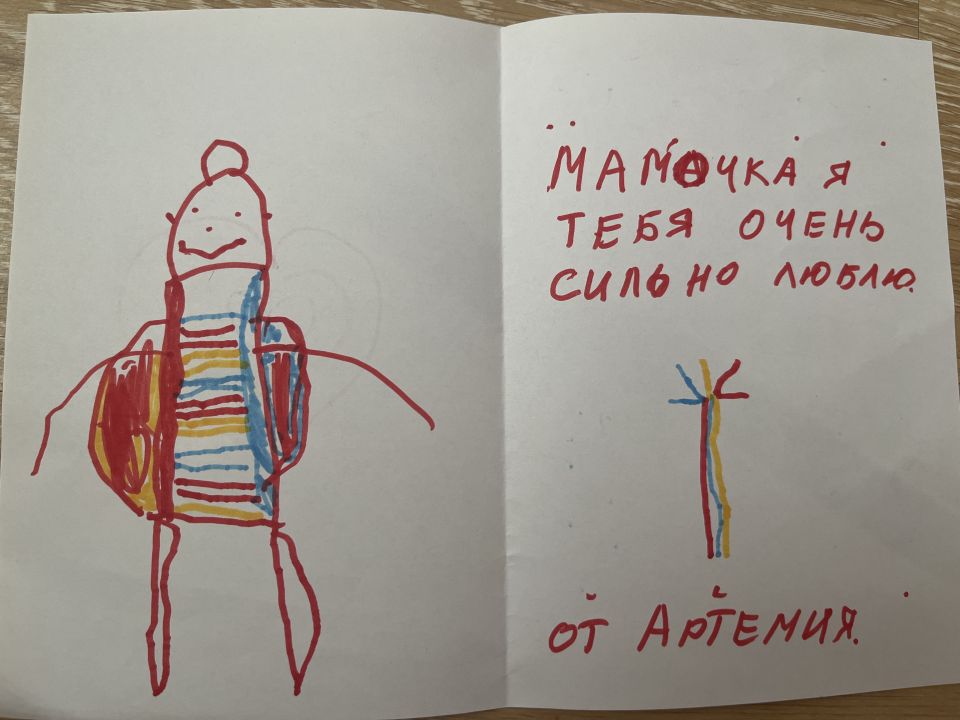 МАМОЧКА Я
ТЕБЯ ОЧЕНЬ
СИЛЬНО ЛЮБЛЮ.
ОТ АРТЕМИЯ.